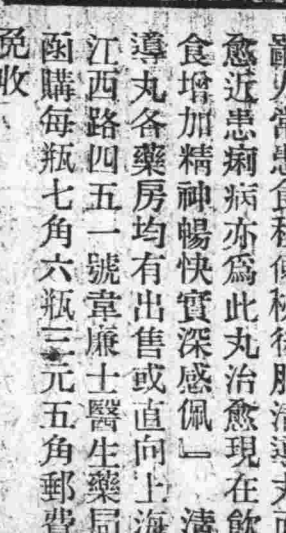 常患食積便秘後服清導丸而
愈近患痢病亦爲此丸治愈現在飲
食增加精神暢快實深感佩』 清
導丸各藥房均有出售或直向上海
江西路四五一號韋廉士醫生藥局
函購每瓶七角六瓶三元五角郵費
免收